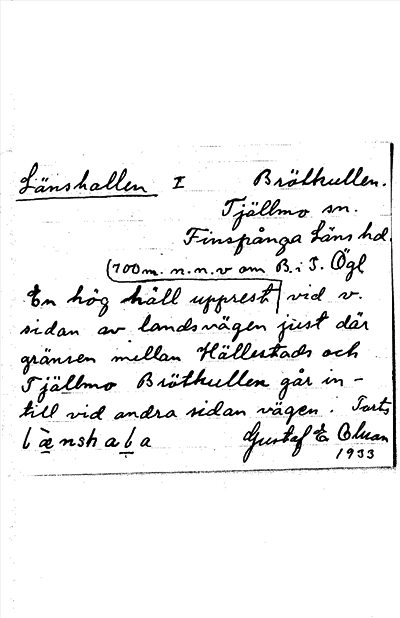 Länshallen I Brötkullen.
Tjällmo sn.
Finspånga Läns hd.
(700m. n.n.v om B. i T. Ögl
En hög häll upprest vid v.
sidan av landsvägen just där
gränsen mellan Hällestads och
Tjällmo Brötkullen går in-
till vid andra sidan vägen. Forts
Gustaf E
1933